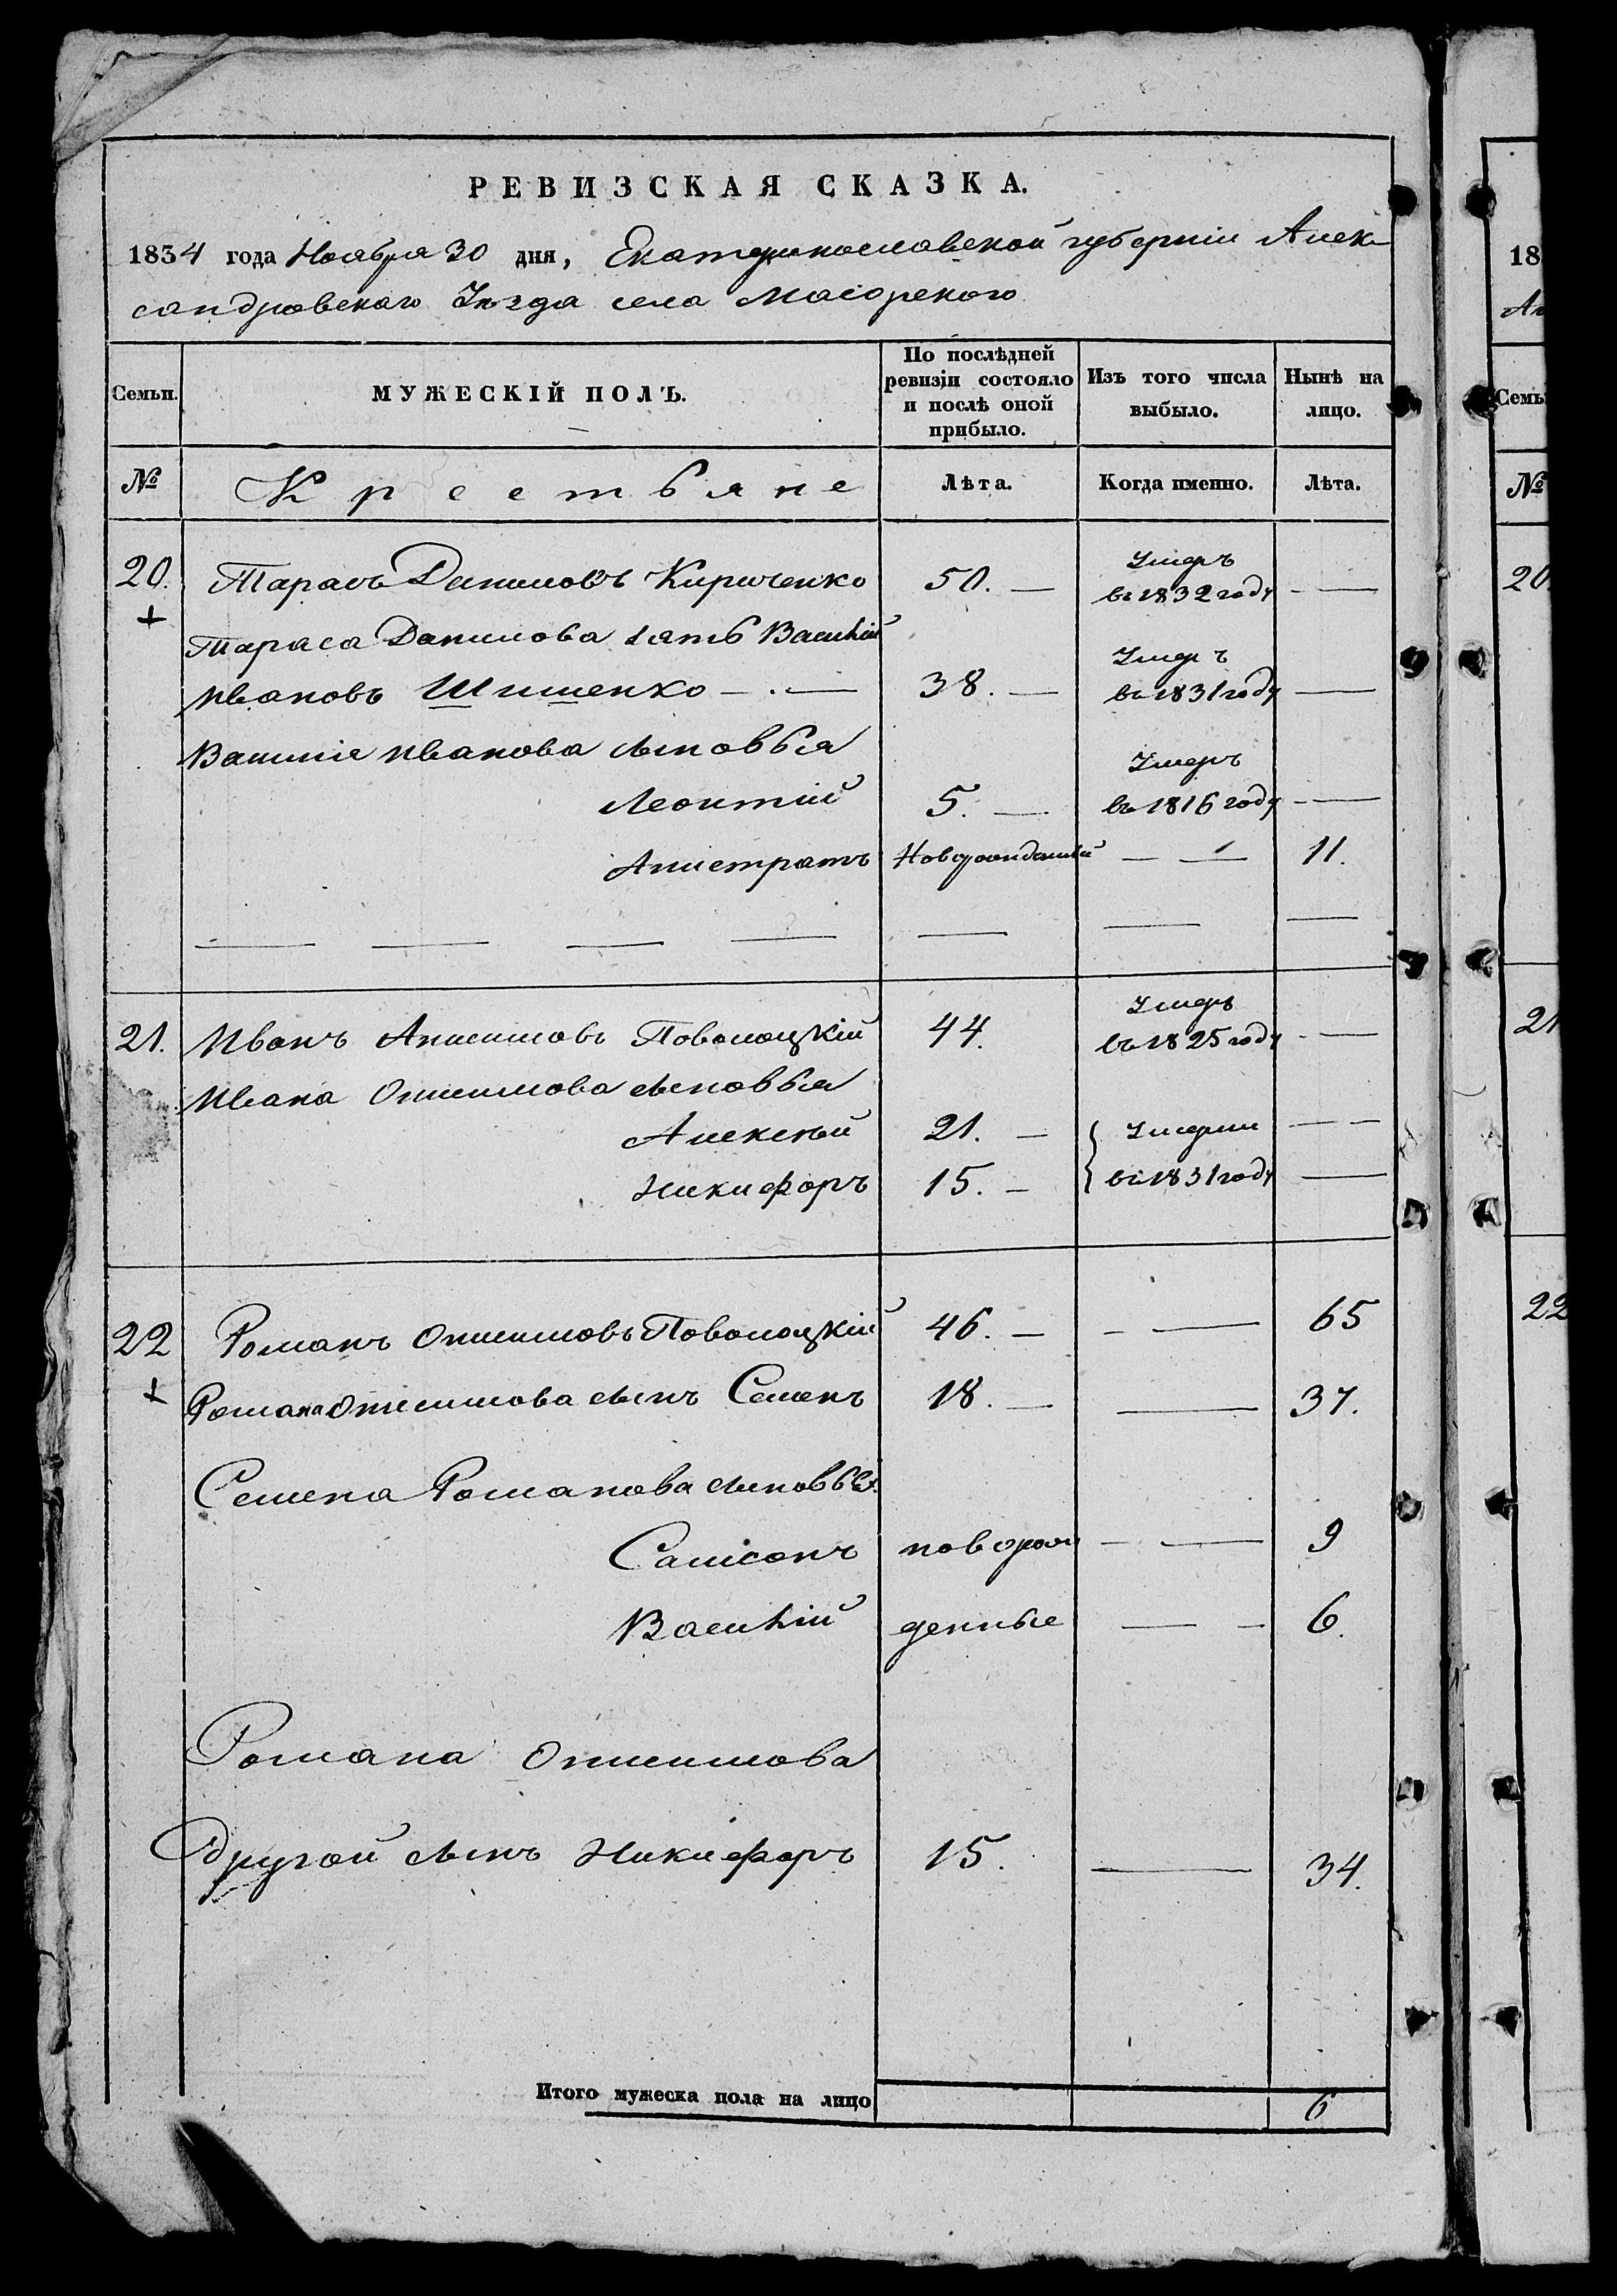 РЕВИЗСКАЯ СКАЗКА.
1834 года Ноября 30 дня, Екатеринославской губернии Алек-
сандровскаго Уѣзда села Маіорскаго
Семьи.
МУЖЕСКІЙ ПОЛЪ.
По послѣдней ревизіи состояло и послѣ оной прибыло.
Изъ того числа выбыло.
Нынѣ на лицо.
№
Крестьяне
Лѣта.
Когда именно.
Лѣта.
20. Тарасъ Даниловъ Кириченко 50. — Умеръ въ 1832 году — —
+
Тараса Данилова зять Василій
Ивановъ Шишенко — . — 38. — Умеръ въ 1831 году —
Василія Иванова сыновья
Леонтій 5. — Умеръ въ 1816 году — —
Анистратъ Новорожденный — — 11.
— — — — — — —
21. Иванъ Анисимовъ Поволоцкій 44. Умеръ въ 1825 году - —
Ивана Онисимова сыновья
Алексѣй 21. — { Умерли — —
Никифоръ 15. — въ 1831 году —
22 Романъ Онисимовъ Поволоцкій 46. — - — 65
+ Романа Онисимова сынъ Семенъ 18. — — 37.
Семена Романова сыновья
Самсонъ новорож — — 9
Василій денные — — 6.
Романа Онисимова
Другой сынъ Никифоръ 15. — 34.
Итого мужеска пола на лицо 6
18
Ал
Семьи
№
20
21
22